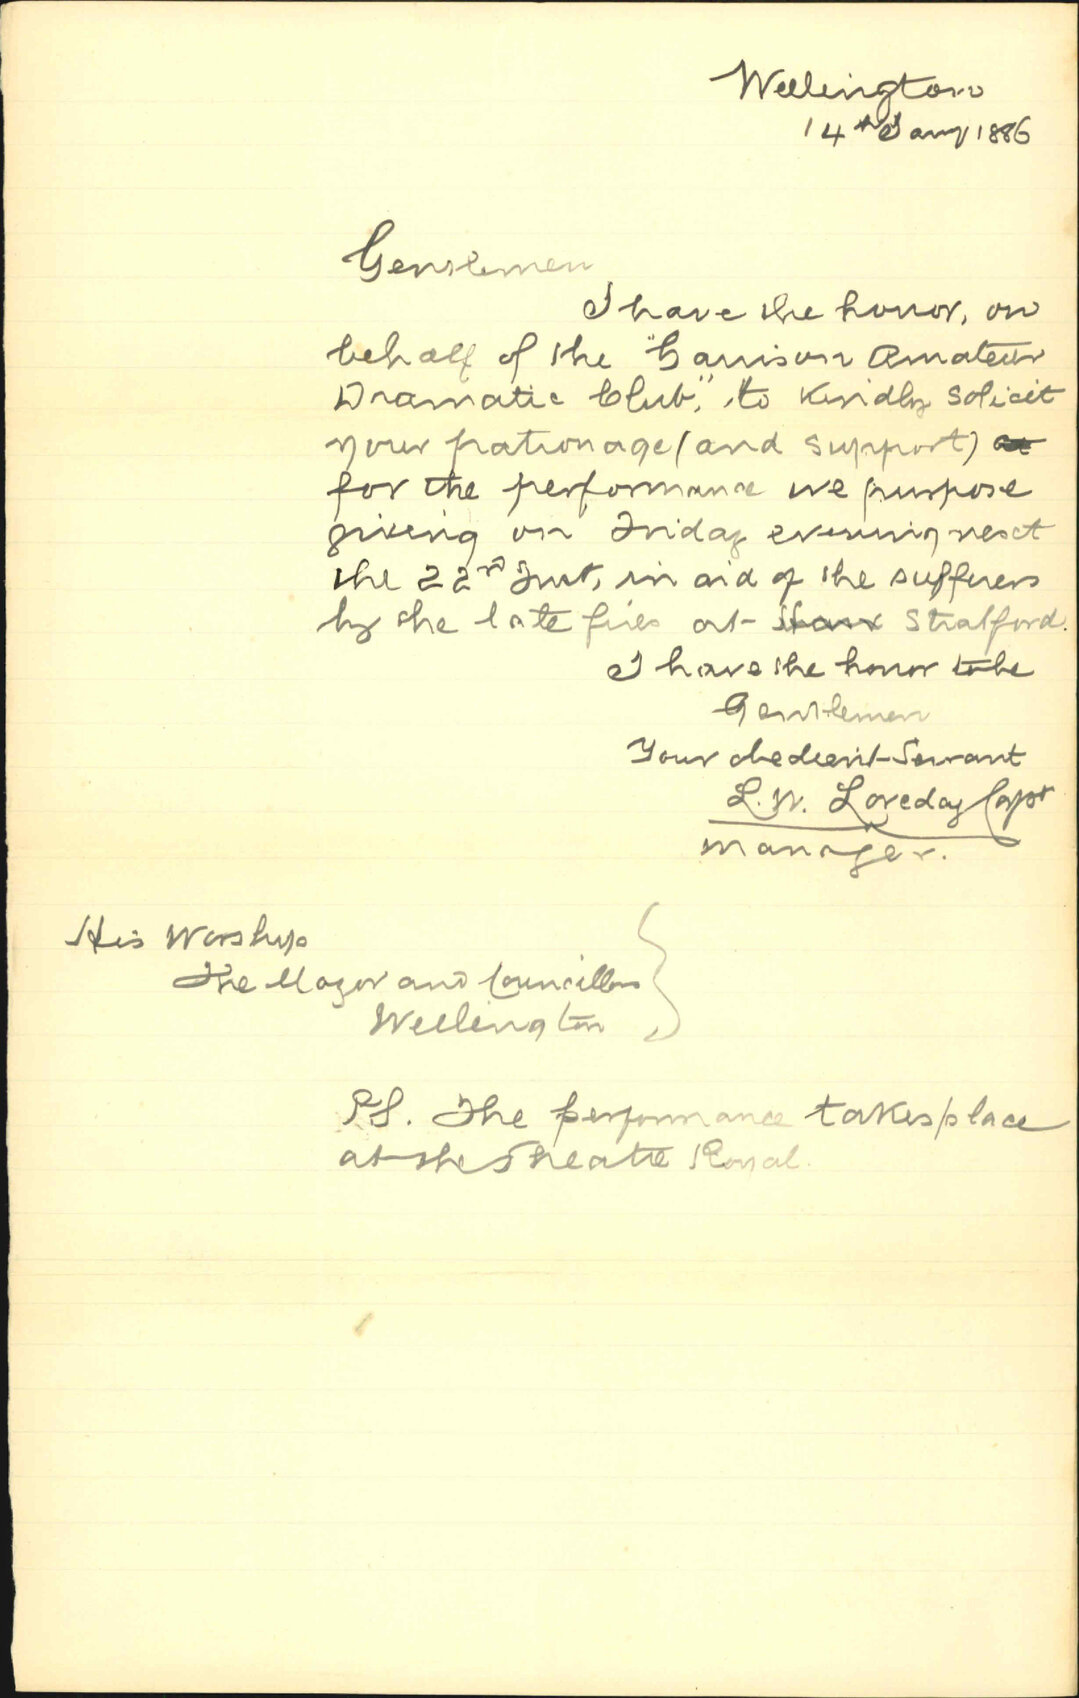 Wellington
14th Jany 1886
Gentlemen
I have the honor, on
behalf of the "Garrison Amateur
Dramatic Club", to kindly solicit
your patronage (and support)
for the performance we purpose
giving on Friday evening next
the 22nd Inst, in aid of the sufferers
by the late fires at Stratford.
I have the honor to be
Gentlemen
Your obedient Servant
L. W. Loveday Capt
manager.
His Worship
The Mayor and Councillors
Wellington
P.S. The performance takes place
at the Theatre Royal.